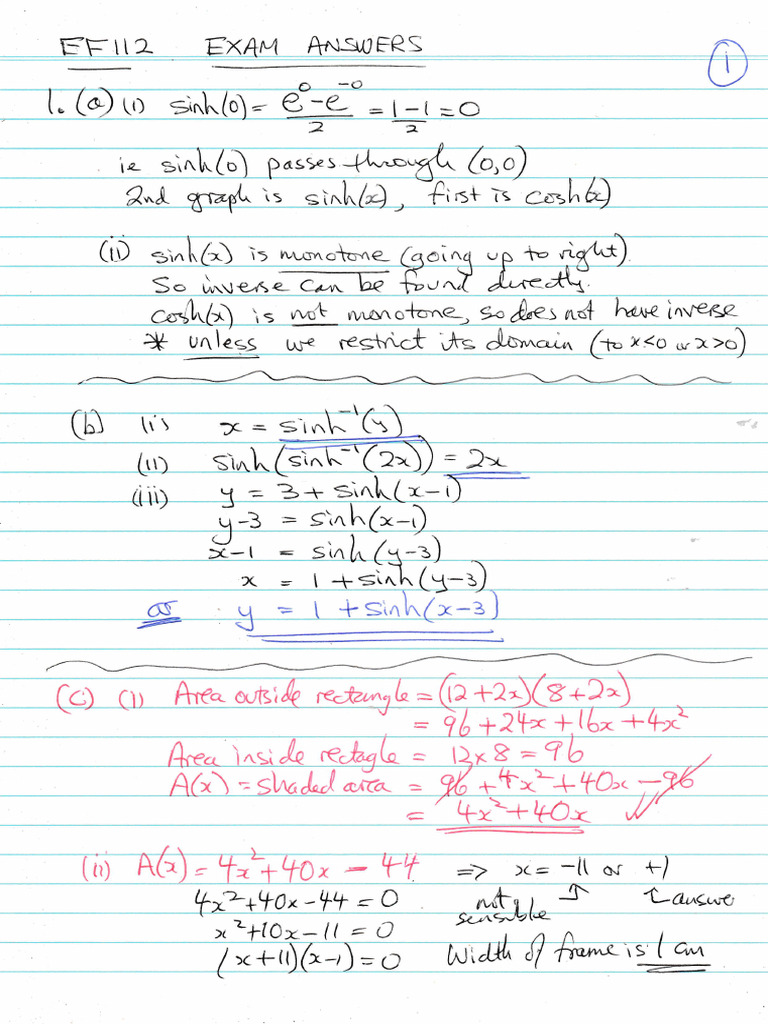 EF112 EXAM ANSWERS
1
1. (a) (i) sinh(0) = (e^0 - e^-0)/2 = (1-1)/2 = 0
ie sinh(0) passes through (0,0)
2nd graph is sinh(x), first is cosh(x)
(ii) sinh(x) is monotone (going up to right).
So inverse can be found directly.
cosh(x) is not monotone, so does not have inverse
* unless we restrict its domain (to x<0 or x>0)
(b) (i) x = sinh^-1(y)
(ii) sinh(sinh^-1(2x)) = 2x
(iii) y = 3 + sinh(x-1)
y-3 = sinh(x-1)
x-1 = sinh(y-3)
x = 1 + sinh(y-3)
or y = 1 + sinh(x-3)
(c) (i) Area outside rectangle = (12+2x)(8+2x)
= 96 + 24x + 16x + 4x^2
Area inside rectagle = 12x8 = 96
A(x) = shaded area = 96 + 4x^2 + 40x - 96
= 4x^2 + 40x
(ii) A(x) = 4x^2 + 40x - 44 => x = -11 or +1
4x^2 + 40x - 44 = 0 not sensible ↑ ↑ answer
x^2 + 10x - 11 = 0
(x+11)(x-1) = 0 Width of frame is 1 cm